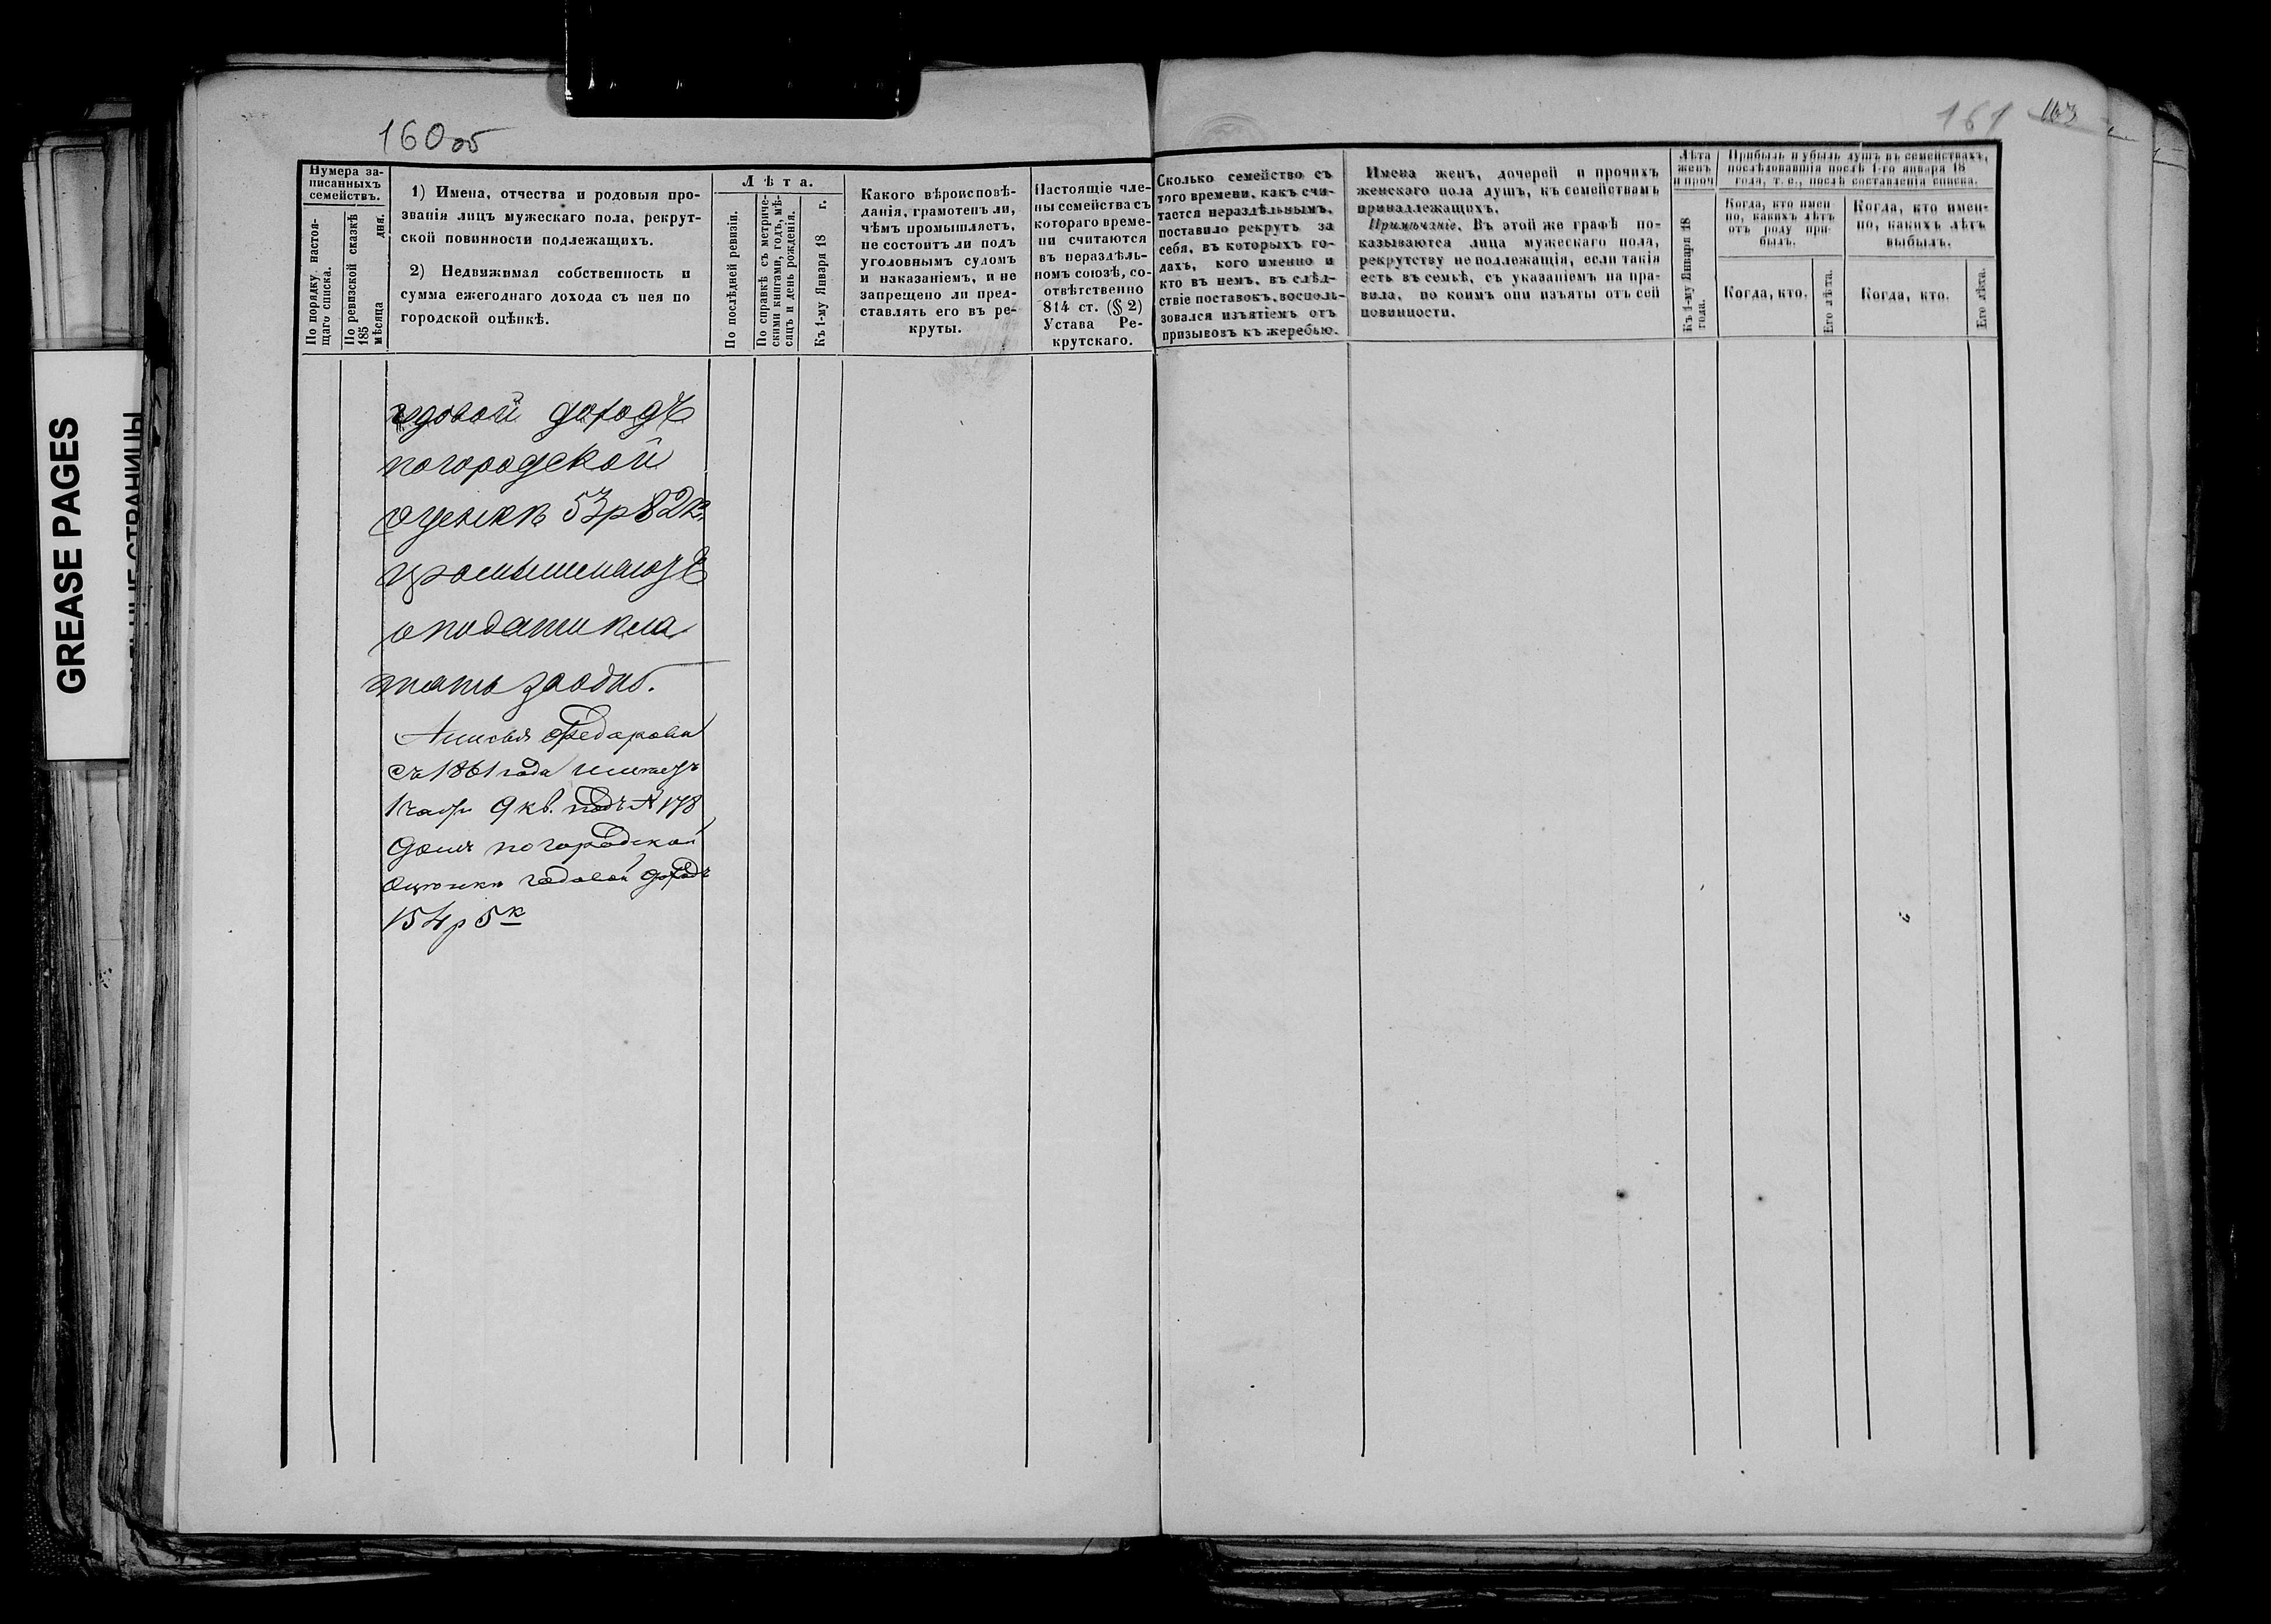 160об
Нумера за-
писанныхъ
семействъ.
По порядку настоя-
щаго списка.
По ревизской сказкѣ
185
мѣсяца дня.
1) Имена, отчества и родовыя про-
званія лицъ мужескаго пола, рекрут-
ской повинности подлежащихъ.
2) Недвижимая собственность и
сумма ежегоднаго дохода съ нея по
городской оцѣнкѣ.
Лѣта.
По послѣдней ревизіи.
По справкѣ съ метриче-
скими книгами, годъ, мѣ-
сяцъ и день рожденія.
Къ 1-му Января 18 г.
Какого вѣроисповѣ-
данія, грамотенъ ли,
чѣмъ промышляетъ,
не состоитъ ли подъ
уголовнымъ судомъ
и наказаніемъ, и не
запрещено ли пред-
ставлять его въ ре-
круты.
Настоящіе чле-
ны семейства съ
котораго време-
ни считаются
въ нераздѣль-
номъ союзѣ, со-
отвѣтственно
814 ст. (§ 2)
Устава Ре-
крутскаго.
годовой доходъ
погородской
оценкѣ 53р 82к.
промышляютъ
оподати пла
тятъ заодно.
Анисья Федарова
съ 1861 года имеетъ
1 част 9 кв. подъ № 178
домъ погородской
оцѣнки годовой доходъ
154р 5к
161 163
Сколько семейство съ
того времени, какъ счи-
тается нераздѣльнымъ,
поставило рекрутъ за
себя, въ которыхъ го-
дахъ, кого именно и
кто въ немъ, въ слѣд-
ствіе поставокъ, восполь-
зовался изъятіемъ отъ
призывовъ къ жеребью.
Имена женъ, дочерей и прочихъ
женскаго пола душъ, къ семействамъ
принадлежащихъ.
Примѣчаніе. Въ этой же графѣ по-
казываются лица мужескаго пола,
рекрутству неподлежащія, если такія
есть въ семьѣ, съ указаніемъ на пра-
вила, по коимъ они изъяты отъ сей
повинности.
Лѣта
женъ
и проч
Къ 1-му Января 18
года.
Прибыль и убыль душъ въ семействахъ,
послѣдовавшія послѣ 1-го января 18
года, т. е., послѣ составленія списка.
Когда, кто имен-
но, какихъ лѣтъ
отъ роду при-
былъ.
Когда, кто.
Его лѣта.
Когда, кто имен-
но, какихъ лѣтъ
выбылъ.
Когда, кто.
Его лѣта.
GREASE PAGES